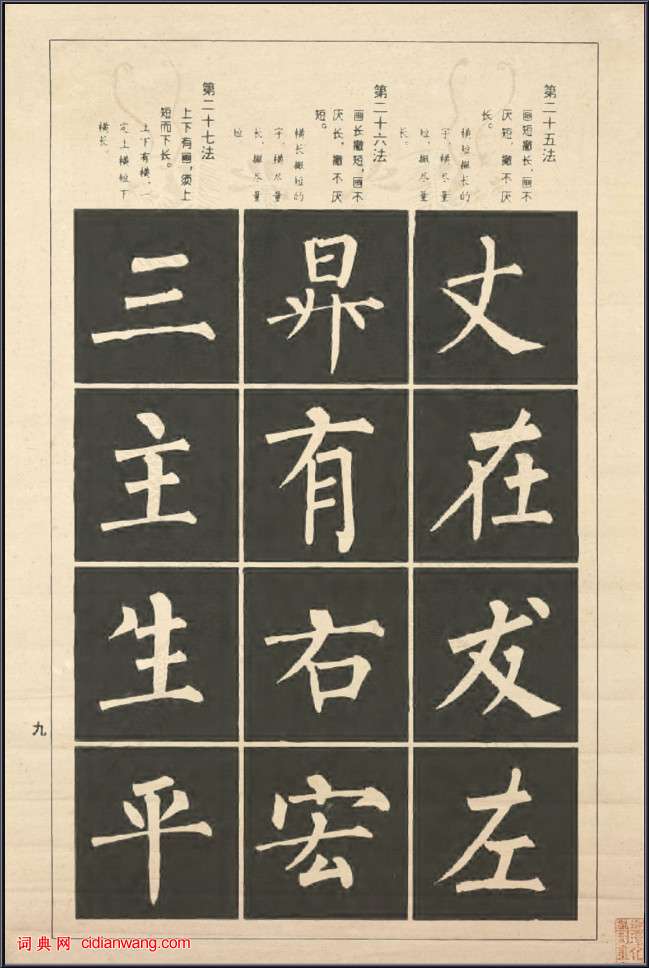 第二十五法
画短撇长,画不
厌短,撇不厌
长。
横短撇长的
字,横尽量
短,撇尽量
长。
第二十六法
画长撇短,画不
厌长,撇不厌
短。
横长撇短的
字,横尽量
长,撇尽量
短
第二十七法
上下有画,须上
短而下长。
上下有横,一
定上横短下
横长。
丈在犮左
昇有右宏
三主生平
九
词典网 cidianwang.com